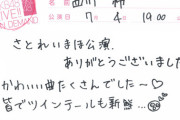 LIVE!!
ON DEMAND
公演日 7月4日 19:00
さとれいまほ公演、
ありがとうございました
かわいい曲たくさんでした〜♡
皆でツインテールも新鮮…